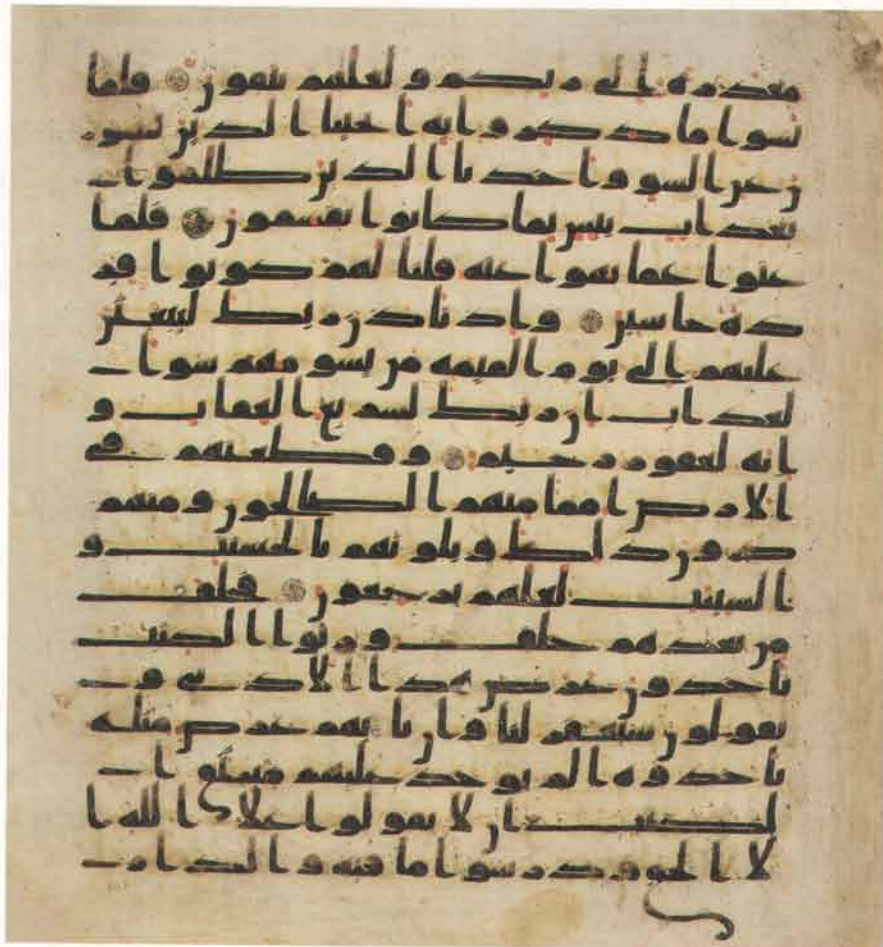 معذرة الى ربكم ولعلهم يتقون فلما
نسوا ما ذكروا به انجينا الذين ينهو
ن عن السو واخذنا الذين ظلموا
بعذاب بيس بما كانوا يفسقون فلما
عتوا عما نهوا عنه قلنا لهم كونوا قر
دة خاسين واذ تاذن ربك ليبعثن
عليهم الى يوم القيمة من يسومهم سو ا
لعذاب ان ربك لسريع العقاب و
انه لغفور رحيم وقطعنهم في
الارض امما منهم الصالحون ومنهم
دون ذلك وبلونهم بالحسنت و
السيت لعلهم يرجعون فخلف
من بعدهم خلف ورثوا الكتب
ياخذون عرض هذا الادنى و
يقولون سيغفر لنا وان ياتهم عرض مثله
ياخذوه الم يوخذ عليهم ميثق ا
لكتب ان لا يقولوا على الله ا
لا الحق ودرسوا ما فيه والدار